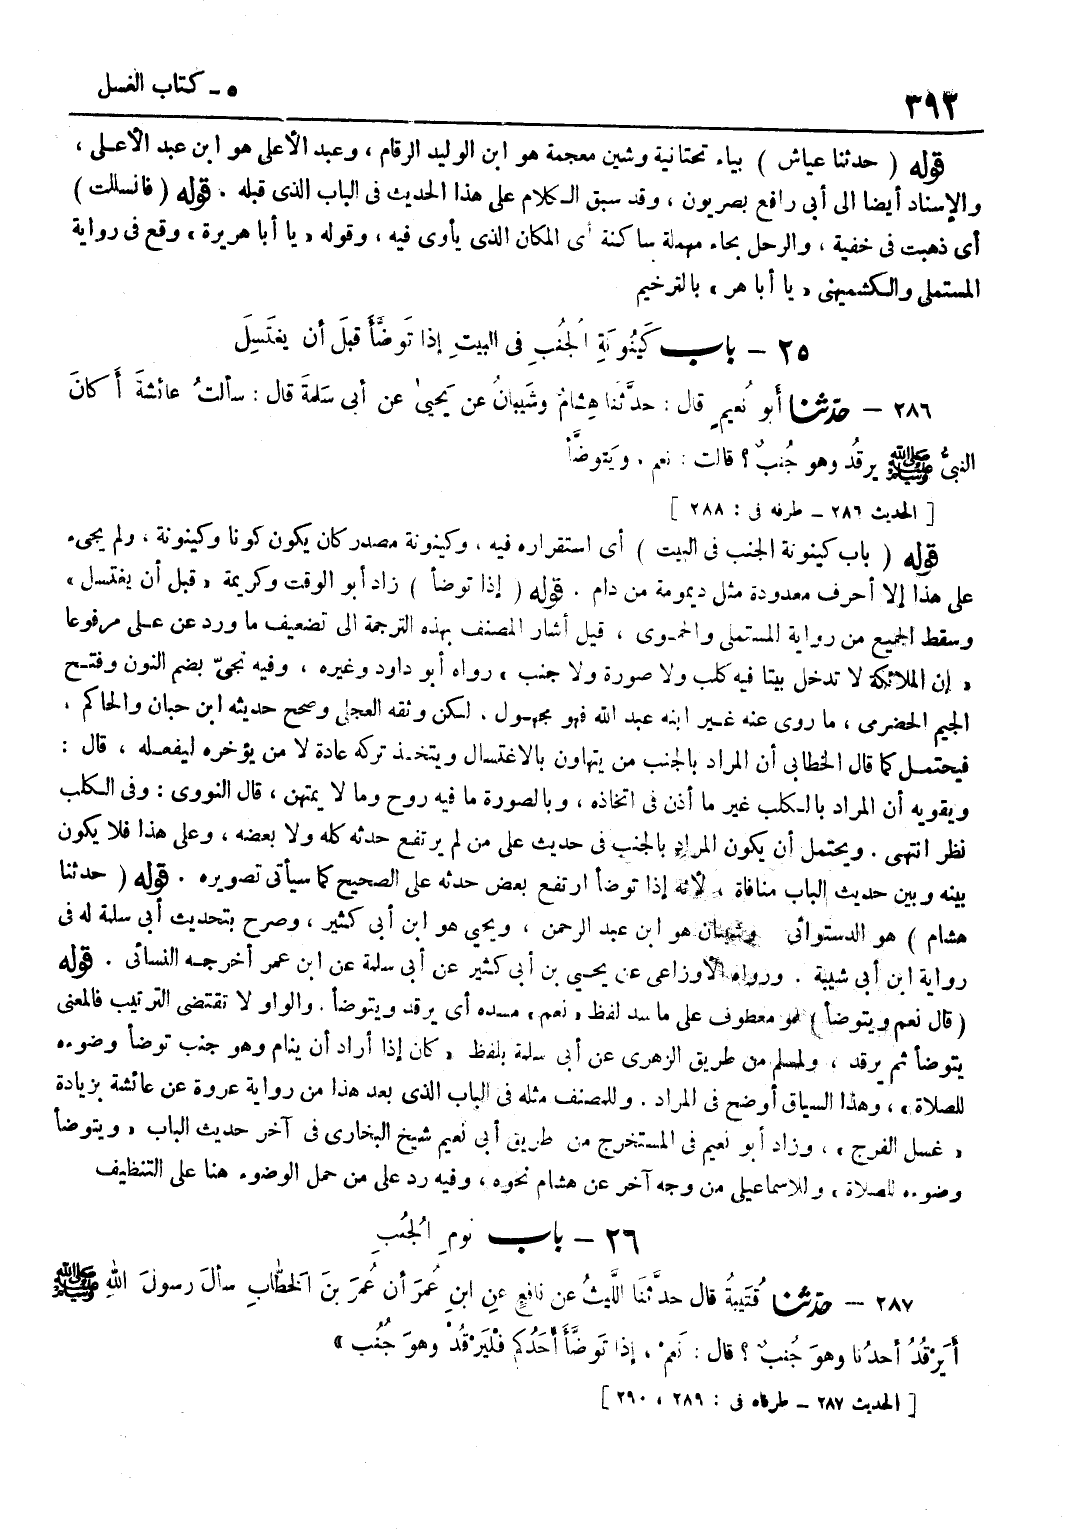 ٥ - كتاب الغسل
٣٩٢
قوله ( حدثنا عياش ) بياء تحتانية وشين معجمة هو ابن الوليد الرقام ، وعبد الأعلى هو ابن عبد الأعلى ،
والإسناد أيضا الى أبى رافع بصريون ، وقد سبق الكلام على هذا الحديث فى الباب الذى قبله . قوله ( فانسللت )
أى ذهبت فى خفية ، والرحل بحاء مهملة ساكنة أى المكان الذى يأوى فيه ، وقوله « يا أبا هريرة » وقع فى رواية
المستملى والكشميهنى « يا أبا هر » بالترخيم
٢٥ - باب كَينُونَةِ الجُنُبِ فى البيتِ إذا تَوضَّأَ قبلَ أن يغتَسِلَ
٢٨٦ - حدّثنا أبو نُعيمٍ قال : حدَّثَنا هِشامٌ وشَيبانُ عن يَحيىٰ عن أبى سَلمةَ قال : سألتُ عائشةَ أَكانَ
النبىُّ ﷺ يرقُدُ وهو جُنبٌ ؟ قالت : نعم . ويَتوضَّأُ
[ الحديث ٢٨٦ - طرفه فى : ٢٨٨ ]
قوله ( باب كينونة الجنب فى البيت ) أى استقراره فيه ، وكينونة مصدر كان يكون كونا وكينونة ، ولم يجىء
على هذا إلا أحرف معدودة مثل ديمومة من دام . قوله ( إذا توضأ ) زاد أبو الوقت وكريمة « قبل أن يغتسل »
وسقط الجميع من رواية المستملى والحموى ، قيل أشار المصنف بهذه الترجمة الى تضعيف ما ورد عن على مرفوعا
« إن الملائكة لا تدخل بيتا فيه كلب ولا صورة ولا جنب » رواه أبو داود وغيره ، وفيه نجىّ بضم النون وفتح
الجيم الحضرمى ، ما روى عنه غير ابنه عبد الله فهو مجهول . لكن وثقه العجلى وصحح حديثه ابن حبان والحاكم ،
فيحتمل كما قال الخطابى أن المراد بالجنب من يتهاون بالاغتسال ويتخذ تركه عادة لا من يؤخره ليفعله ، قال :
ويقويه أن المراد بالكلب غير ما أذن فى اتخاذه ، وبالصورة ما فيه روح وما لا يمتهن ، قال النووى : وفى الكلب
نظر انتهى . ويحتمل أن يكون المراد بالجنب فى حديث على من لم يرتفع حدثه كله ولا بعضه ، وعلى هذا فلا يكون
بينه وبين حديث الباب منافاة ، لأنه إذا توضأ ارتفع بعض حدثه على الصحيح كما سيأتى تصويره . قوله ( حدثنا
هشام ) هو الدستوائى وشيبان هو ابن عبد الرحمن ، ويحيى هو ابن أبى كثير ، وصرح بتحديث أبى سلمة له فى
رواية ابن أبى شيبة . ورواه الأوزاعى عن يحيى بن أبى كثير عن أبى سلمة عن ابن عمر أخرجه النسائى . قوله
( قال نعم ويتوضأ ) هو معطوف على ما سد لفظ « نعم » مسده أى يرقد ويتوضأ . والواو لا تقتضى الترتيب فالمعنى
يتوضأ ثم يرقد ، ولمسلم من طريق الزهرى عن أبى سلمة بلفظ « كان إذا أراد أن ينام وهو جنب توضأ وضوءه
للصلاة » ، وهذا السياق أوضح فى المراد . وللمصنف مثله فى الباب الذى بعد هذا من رواية عروة عن عائشة بزيادة
« غسل الفرج » ، وزاد أبو نعيم فى المستخرج من طريق أبى نعيم شيخ البخارى فى آخر حديث الباب « ويتوضأ
وضوءه للصلاة » وللاسماعيلى من وجه آخر عن هشام نحوه ، وفيه رد على من حمل الوضوء هنا على التنظيف
٢٦ - باب نومِ الجُنُبِ
٢٨٧ - حدّثنا قُتَيبةُ قال حدَّثنَا اللَّيثُ عن نافعٍ عنِ ابنِ عُمرَ أن عُمرَ بنَ الخطّابِ سألَ رسولَ اللهِ ﷺ
أَيَرْقُدُ أحدُنا وهوَ جُنبٌ ؟ قال : نَعَمْ ، إذا تَوضَّأَ أَحَدُكم فلْيَرْقُدْ وهوَ جُنُب »
[ الحديث ٢٨٧ - طرفاه فى : ٢٨٩ ، ٢٩٠ ]